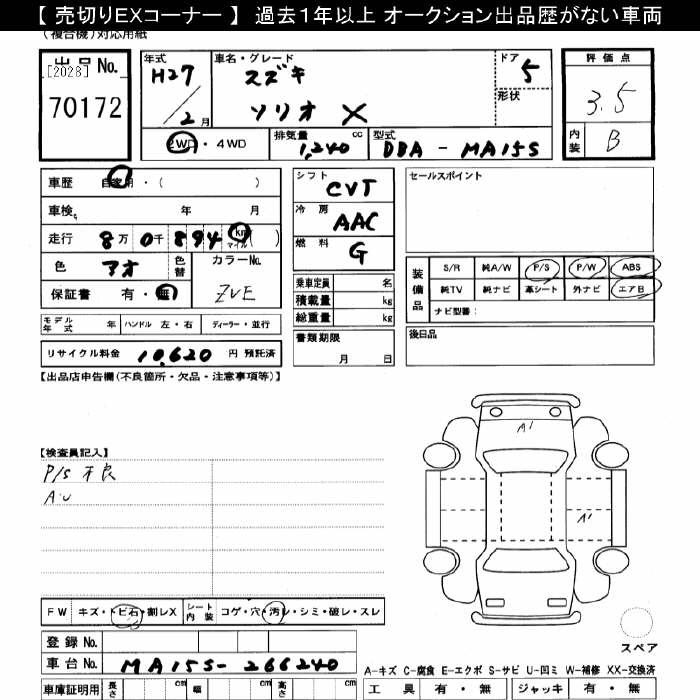 【 売切りEXコーナー 】 過去１年以上 オークション出品歴がない車両
(複合機)対応用紙
出品No.
[2028]
70172
年式 H27 / 2月
車名・グレード スズキ
ソリオ X
ドア 5
形状
評価点 3.5
内装 B
2WD・4WD
排気量 1,240 cc
型式 DBA - MA15S
車歴 自家用・( )
車検 年 月
走行 8万 0千 894 km マイル ( )
色 アオ 色替 カラーNo. ZVE
保証書 有・無
シフト CVT
冷房 AAC
燃料 G
乗車定員 名
積載量 kg
総重量 kg
書類期限
月 日
セールスポイント
装備品
S/R 純A/W P/S P/W ABS
純TV 純ナビ 革シート 外ナビ エアB
ナビ型番:
後日品
モデル年式 年 ハンドル 左・右 ディーラー・並行
リサイクル料金 10,620 円 預託済
【出品店申告欄(不良箇所・欠品・注意事項等)】
【検査員記入】
P/S 不良
A.U
A1
A1
スペア
FW キズ・トビ石・割レX シート内装 コゲ・穴・汚レ・シミ・破レ・スレ
登録 No.
車台 No. MA15S-266240
車庫証明用 長さ cm 幅 cm 高さ cm
A-キズ C-腐食 E-エクボ S-サビ U-凹ミ W-補修 XX-交換済
工具 有・無 ジャッキ 有・無